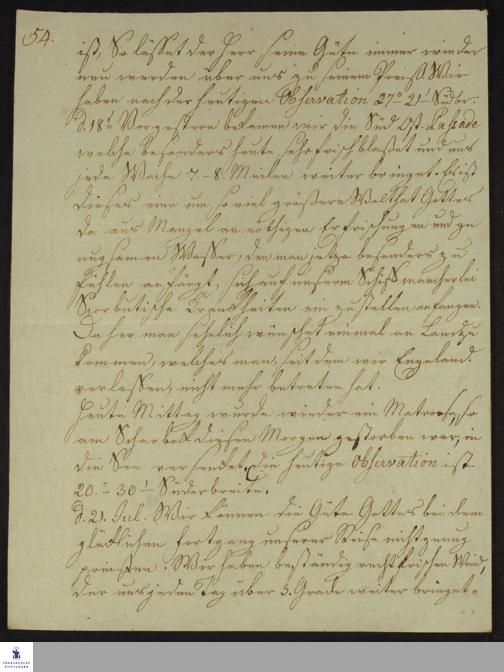 54.
ist, So lässet der Herr seine Güte immer wieder
neu werden über uns zu seinem Preiß. Wir
haben nach der heutigen Observation 27° 21' Südbr:
d. 18t Vorgestern bekamen wir die Süd Ost-Passade
welche besonders heute sehr frisch blaset und uns
jede Wache 7-8. Meilen weiter bringet. Es ist
dieses eine um so viel größere Wolthat Gottes
da aus Mangel an nöthigen Erfrischungen und ge
nugsamen Wasser, den man jetzo besonders zu
fühlen anfängt, sich auf unserm Schiff mancherlei
Scorbutische Kranckheiten einzustellen anfangen.
Daher man sehnlich wünschet einmal an Land zu
kommen, welches man, seit dem wir Engeland
verlassen, nicht mehr betreten hat.
Heute Mittag wurde wieder ein Matrose, so
am Scharbock diesen Morgen gestorben war, in
die See versencket. Die heutige Observation ist
20.° 30' Süderbreite.
d. 21. Jul. Wir können die Güte Gottes bei dem
glücklichen fortgang unserer Reise nicht genug
preisen. Wir haben beständig recht frischen Wind,
der uns jeden Tag über 3. Grade weiter bringet.
FRANCKESCHE
STIFTUNGEN